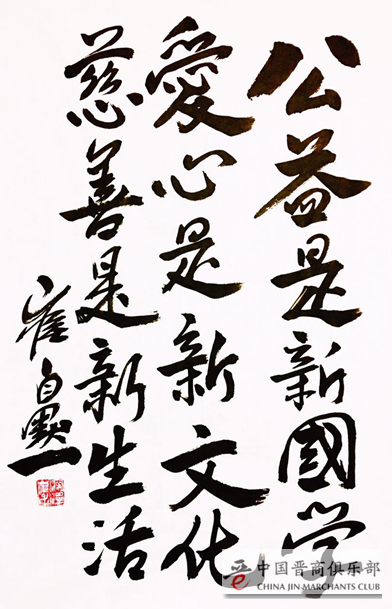 公益是新國学
愛心是新文化
慈善是新生活
崔自默
中国晋商俱乐部
CHINA JIN-MARCHANTS CLUB